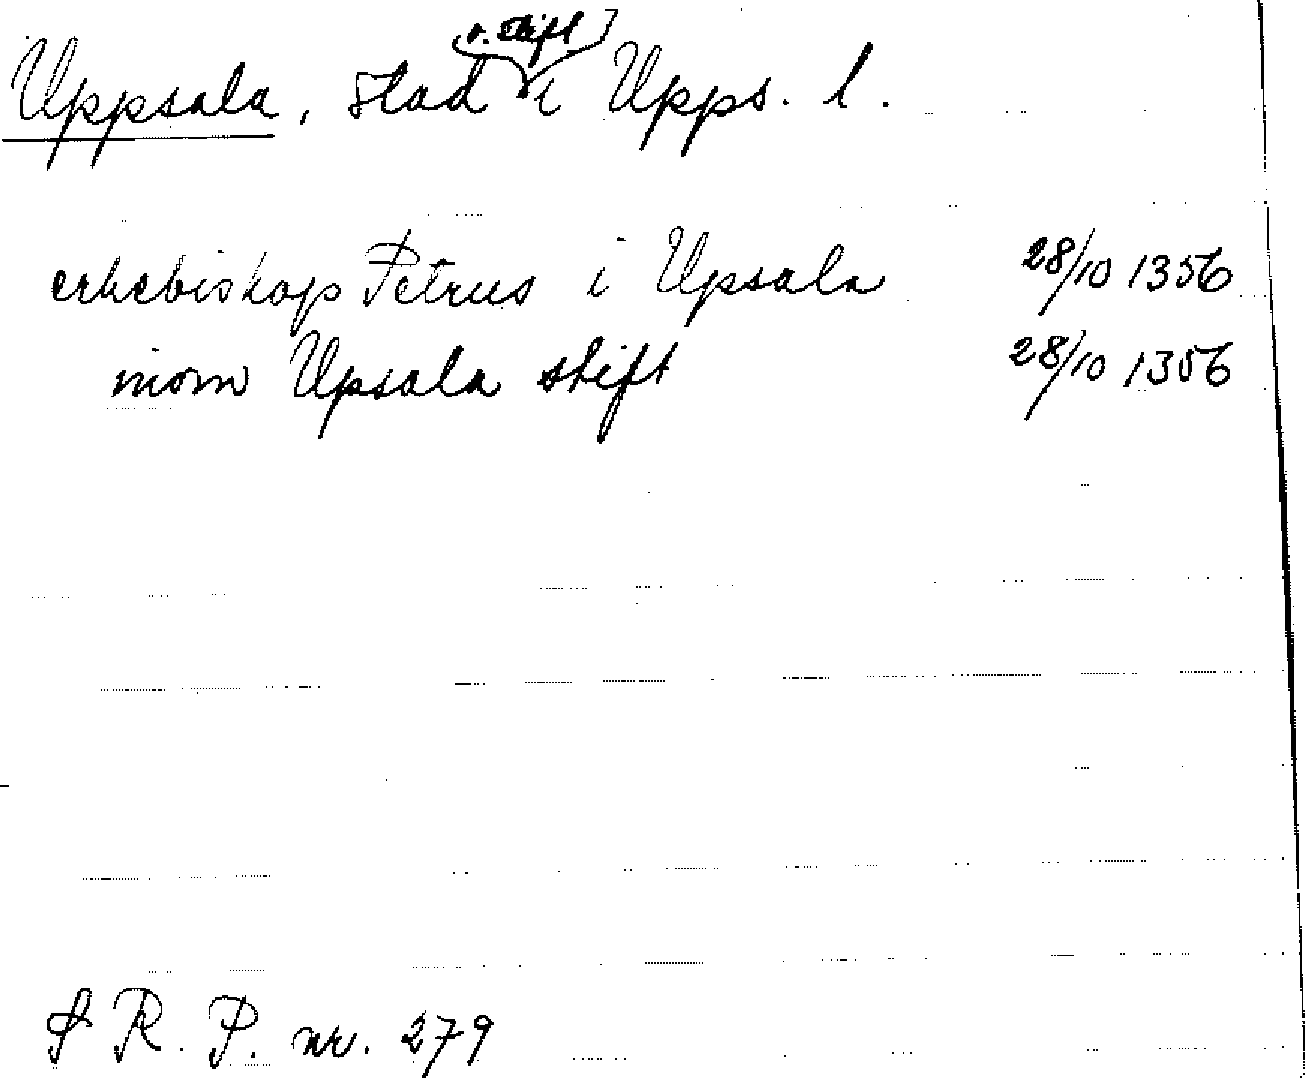 Uppsala, stad (o. stift) i Upps. l.
erkebiskop Petrus i Upsala 28/10 1356
inom Upsala stift 28/10 1356
S R. P. nr. 279